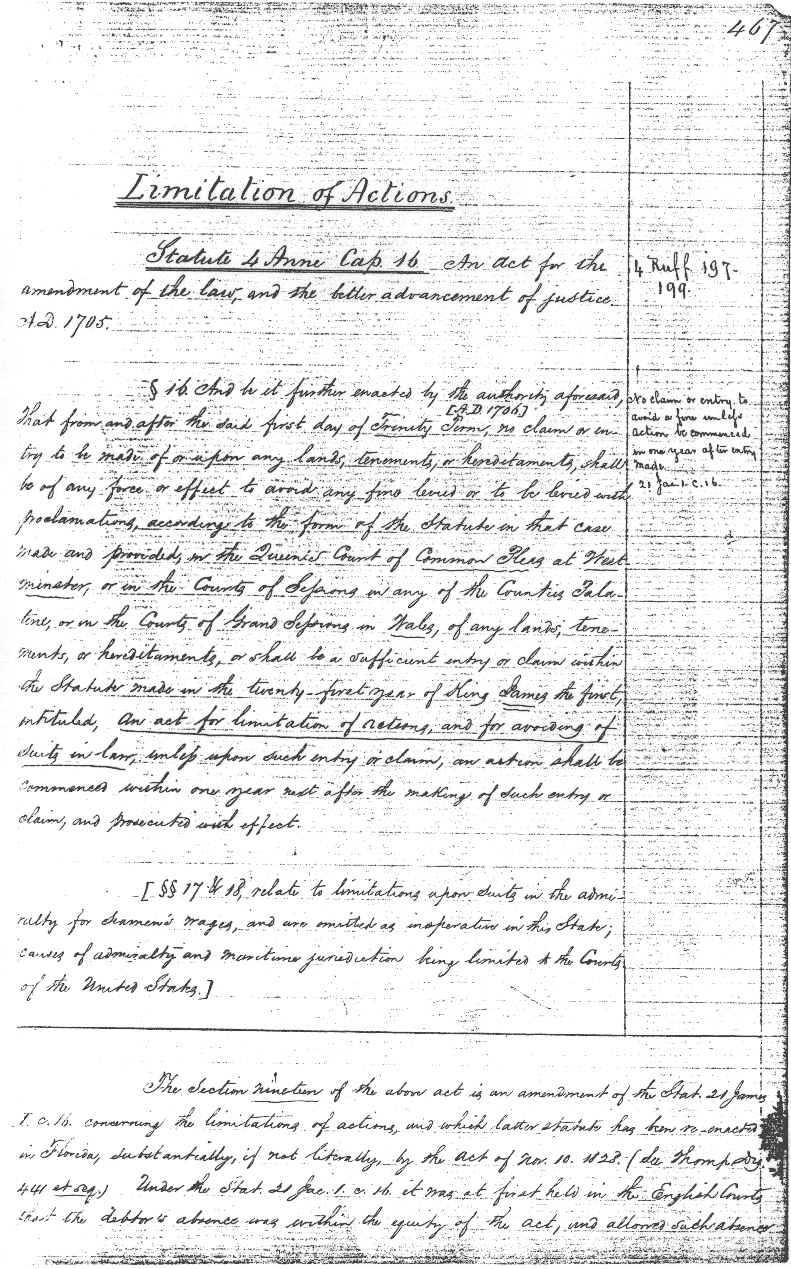 467
Limitation of Actions.
Statute 4 Anne Cap. 16 An act for the
amendment of the law, and the better advancement of justice
A.D. 1705.
4 Ruff 197-
199.
§ 16. And be it further enacted by the authority aforesaid,
[A.D 1706]
That from and after the said first day of Trinity Term, no claim or en-
try to be made of or upon any lands, tenements, or hereditaments, shall
be of any force or effect to avoid any fine levied or to be levied with
proclamations, according to the form of the Statute in that case
made and provided, in the Queen's Court of Common Pleas at West-
minster, or in the Courts of Sessions in any of the Counties Pala-
tine, or in the Courts of Grand Sessions in Wales, of any lands, tene-
ments, or hereditaments, or shall be a sufficient entry or claim within
the Statute made in the twenty-first year of King James the first,
intituled, An act for limitation of actions, and for avoiding of
suits in law, unless upon such entry or claim, an action shall be
commenced within one year next after the making of such entry or
claim, and prosecuted with effect.
No claim or entry to
avoid a fine unless
action be commenced
in one year after entry
made.
21 Jac. 1. c. 16.
[§§ 17 & 18, relate to limitations upon suits in the admi-
ralty for seamen's wages, and are omitted as inoperative in this State;
causes of admiralty and maritime jurisdiction being limited to the Courts
of the United States.]
The section nineteen of the above act is an amendment of the Stat. 21 James
I. c. 16. concerning the limitations of actions, and which latter statute has been re-enacted
in Florida, substantially, if not literally, by the act of Nov. 10. 1828. (See Thomp. Dig.
441 et seq.) Under the Stat. 21 Jac. 1. c. 16. it was at first held in the English Courts
that the debtor's absence was within the equity of the act, and allowed such absence